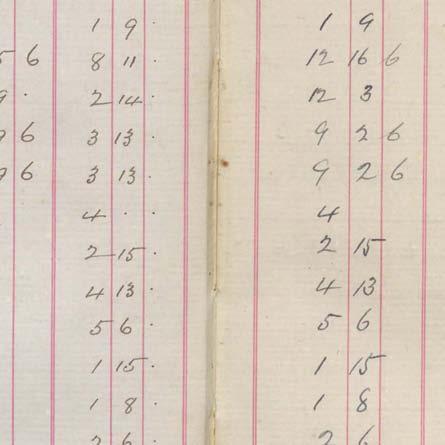 1 9 . 1 9
6 8 11 . 12 16 6
. 2 14 . 12 3
6 3 13 . 9 2 6
6 3 13 . 9 2 6
4 . . 4
2 15 . 2 15
4 13 . 4 13
5 6 . 5 6
1 15 . 1 15
1 8 . 1 8
2 6 . 2 6